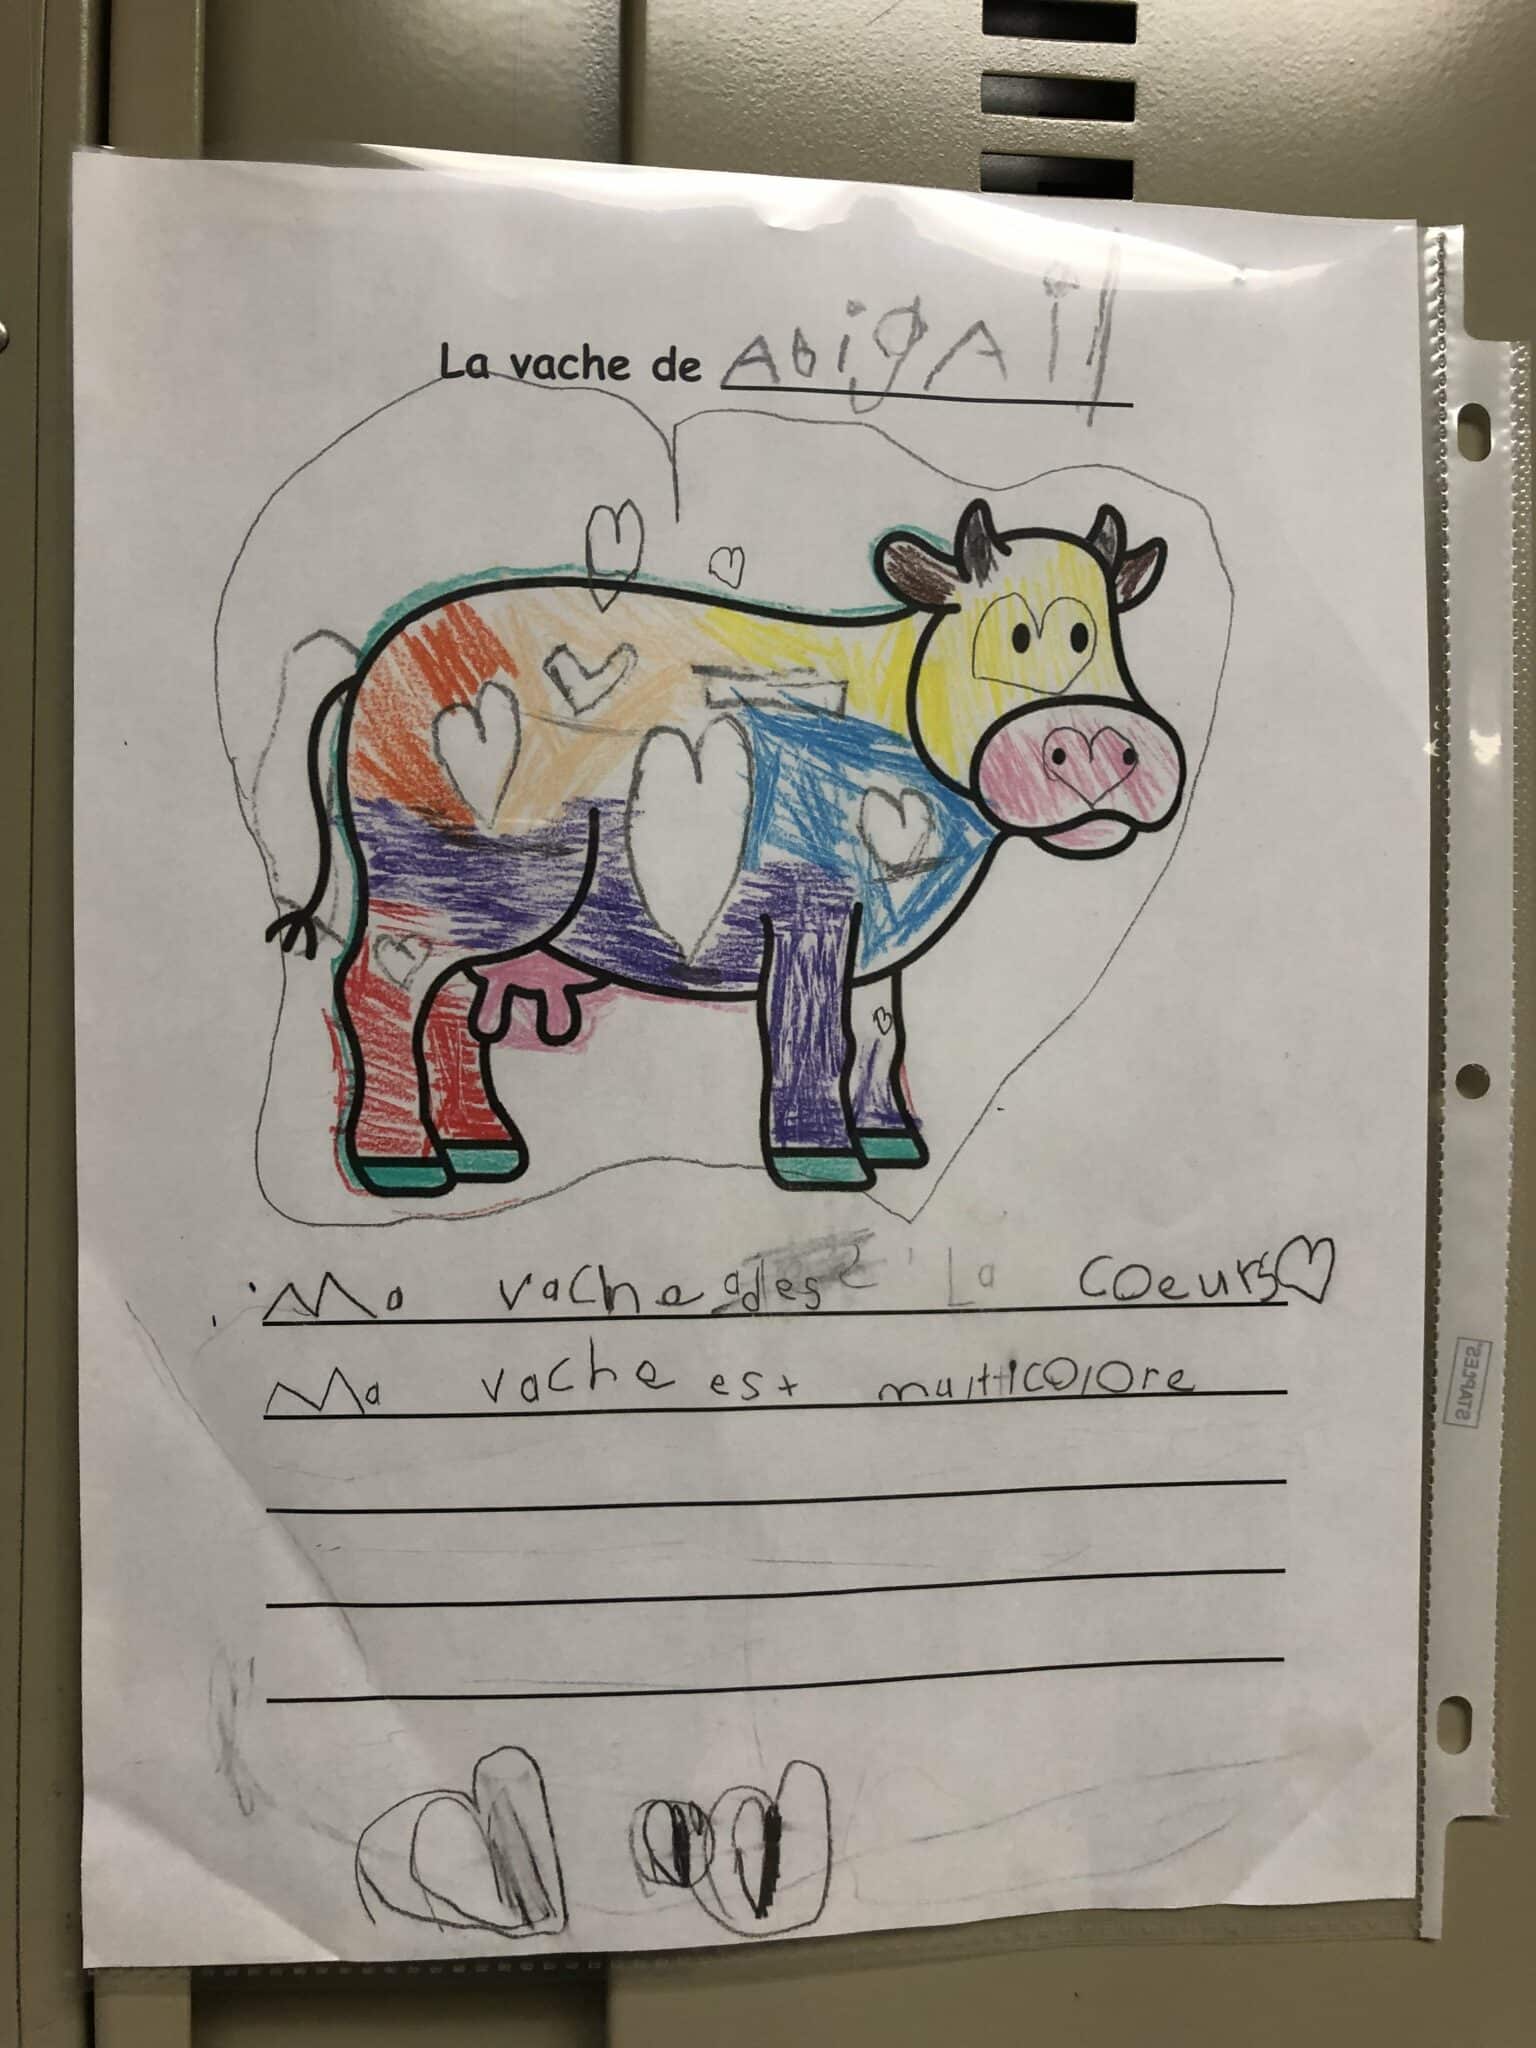 La vache de Abigail
Ma vache a des coeurs
Ma vache est multicolore
STAPLES